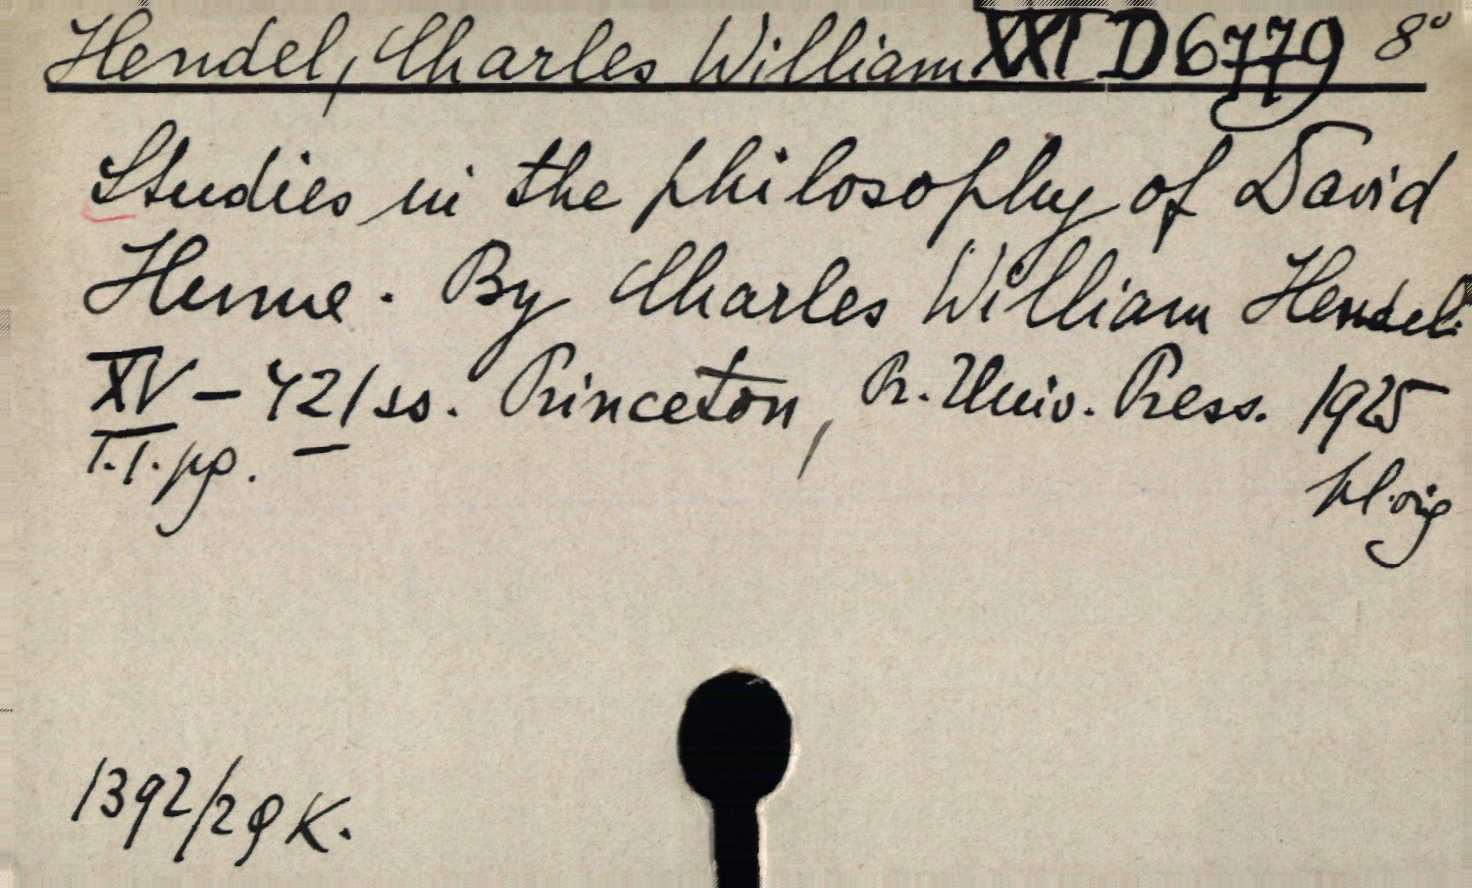 Hendel, Charles William XXI D 6779 8°
Studies in the philosophy of David
Hume. By Charles William Hendel.
XV – 421 ss. Princeton, Pr. Univ. Press. 1925
T.T. pg. –
pl. orig
1392/29 K.